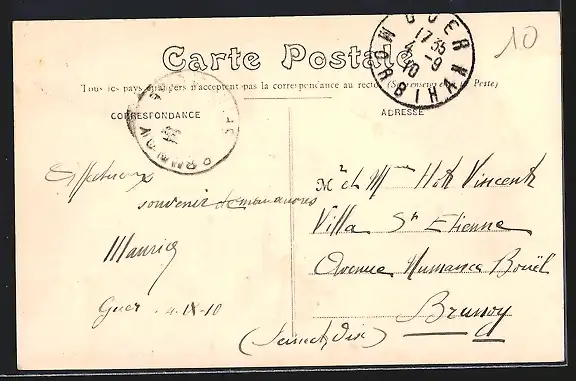 10
Carte Postale
Tous les pays étrangers n'acceptent pas la correspondance au recto. (Se renseigner à la Poste)
GUER
17 35
4 - 9
10
MORBIHAN
CORRESPONDANCE
ADRESSE
Affectueux
souvenir de manœuvres
Maurice
Guer . 4-IX-10
Mr et Mme Hoth Vincent
Villa St Etienne
Avenue
Brunoy
(Seine et Oise)